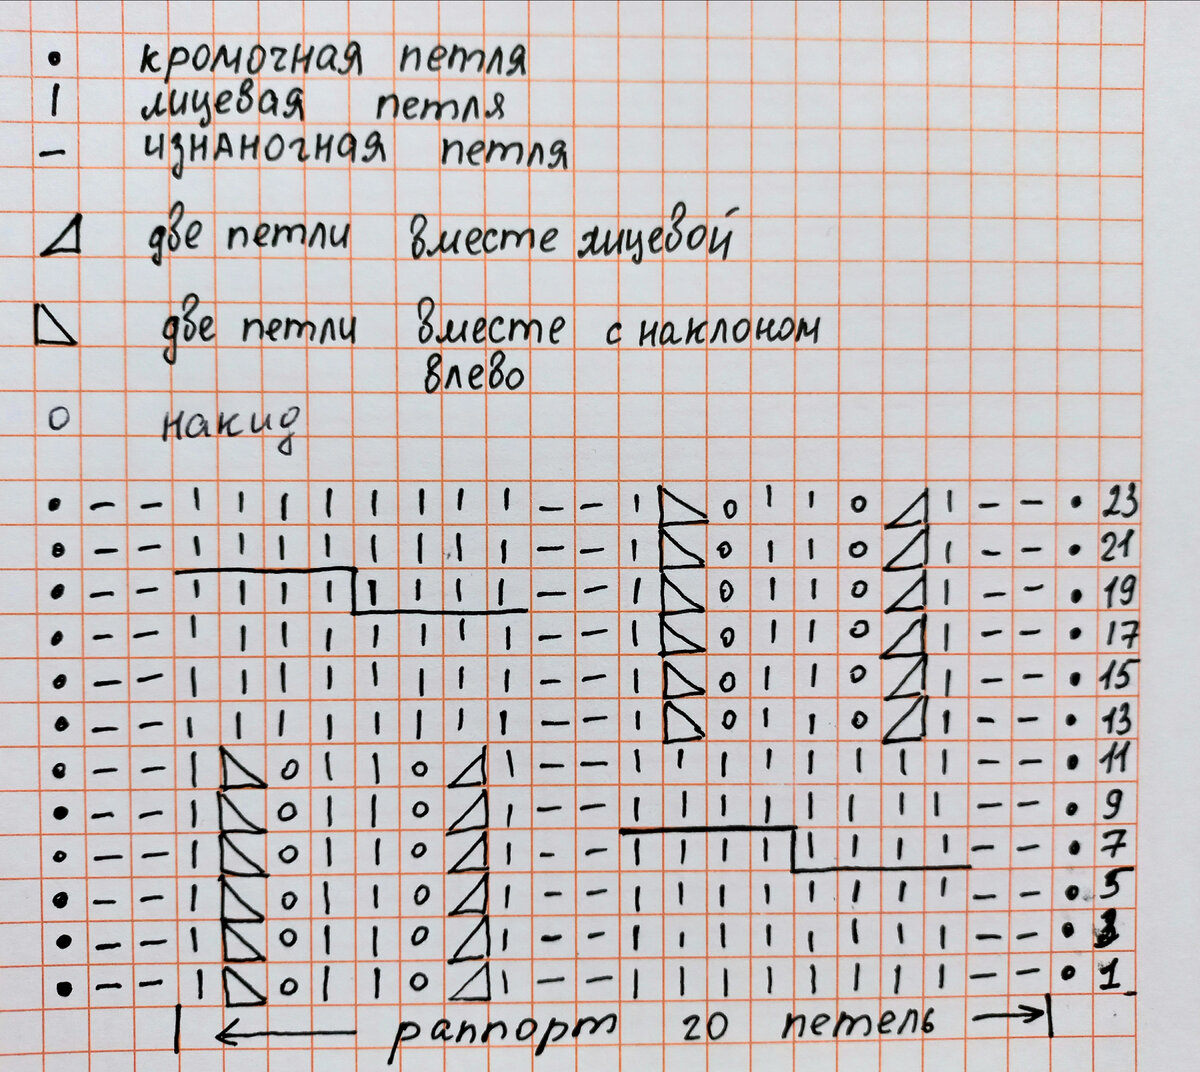 • кромочная петля
| лицевая петля
– изнаночная петля
две петли вместе лицевой
две петли вместе с наклоном
влево
о накид
23
21
19
17
15
13
11
9
7
5
3
1
раппорт 20 петель